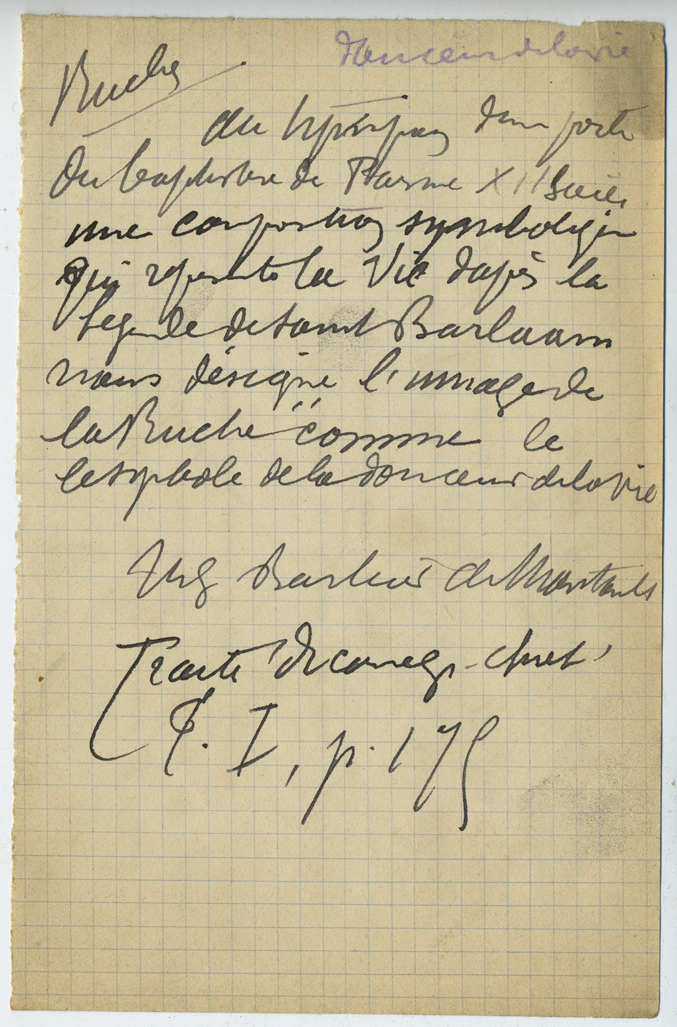 douceur de la vie
Ruche
au tympan d'une porte
du baptistère de Parme XII siècle
une composition symbolique
qui représente la Vie d'après la
légende de saint Barlaam
nous désigne l'image de
la Ruche comme le
le symbole de la douceur de la vie
Mgr Barbier de Montault
Traité d'iconogr. chret.
T. I, p. 175